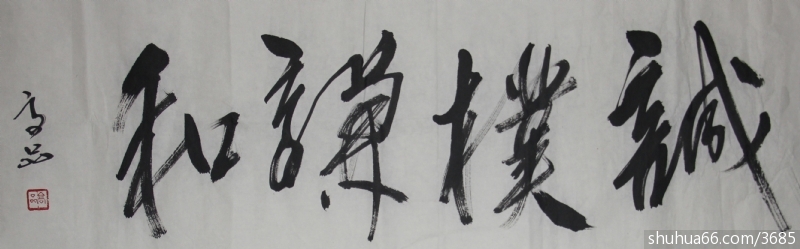 誠樸謙和
shuhua66.com/3685